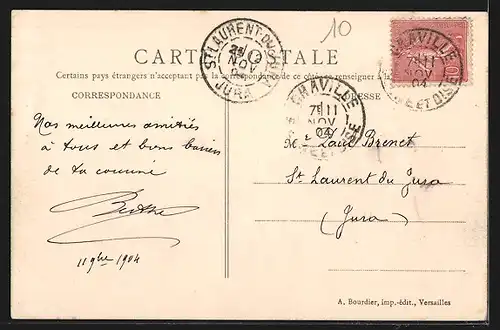 10
CARTE POSTALE
Certains pays étrangers n'acceptant pas la correspondance de ce côté, se renseigner à la
CORRESPONDANCE
ADRESSE
ST LAURENT-DU-JURA
NOV
04
JURA
CHAVILLE
7 11
NOV
04
SEINE ET OISE
CHAVILLE
7 11
NOV
04
SEINE ET OISE
Nos meilleures amitiés
à tous et bons baisers
de ta cousine
Berthe
11 9bre 1904
Mr Paul Brenet
St Laurent du Jura
(Jura)
A. Bourdier, imp.-édit., Versailles